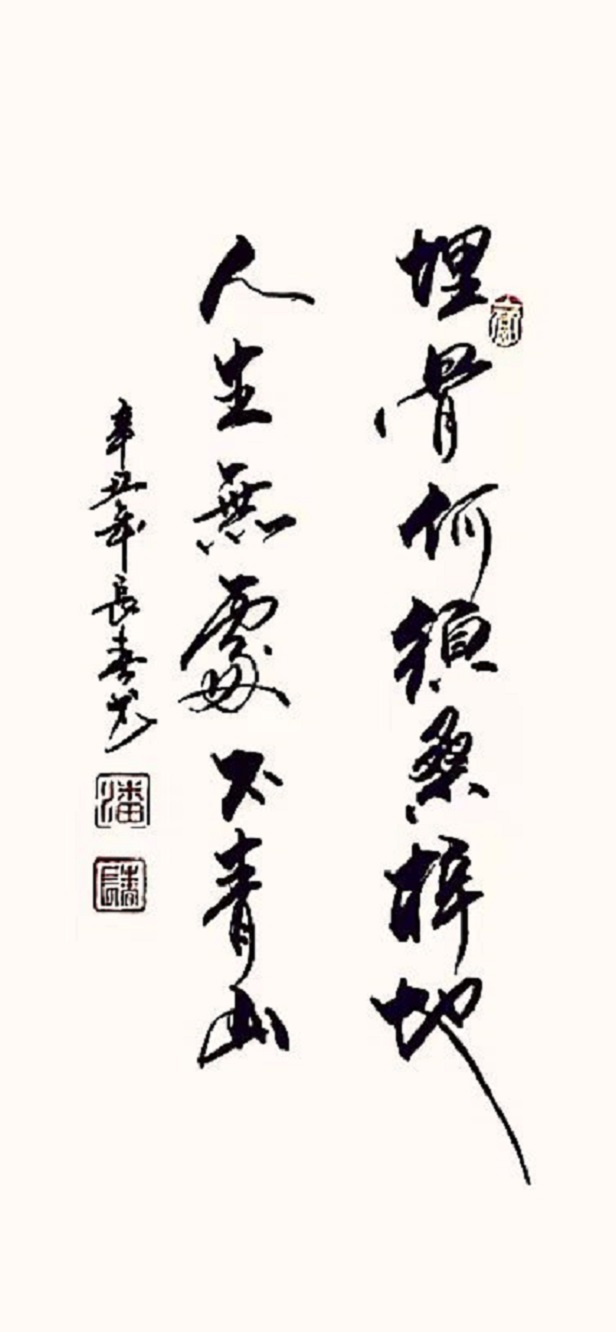 埋骨何須桑梓地
人生無處不青山
辛丑年長春書
潘
長春